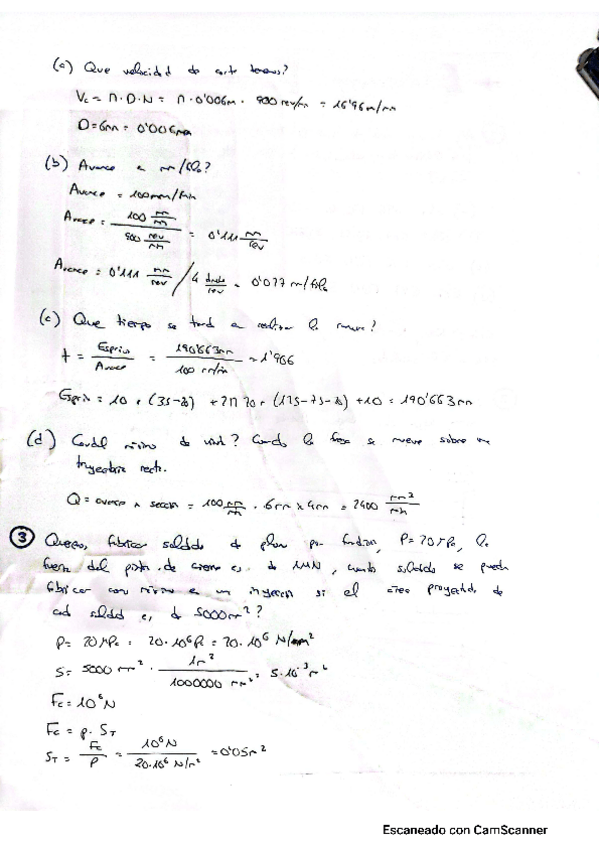 (a) Que velocidad de corte tenemos?
Vc = π · D · N = π · 0'006m · 900 rev/min = 16'96 m/min
D = 6mm = 0'006m
(b) Avance en mm/filo?
Avance = 100mm/min
Avance = 100 mm/min / 900 rev/min = 0'111 mm/rev
Avance = 0'111 mm/rev / 4 = 0'027 m/filo
(c) Que tiempo se tarda en realizar la ?
t = / Avance = 190'663mm / 100 mm/min = 1'906
= 10 + (35-20) + 2π20 + (175-75-20) + 10 = 190'663mm
(d) Caudal de viruta? Cuando la fresa se mueve sobre una
trayectoria recta.
Q = avance x sección = 100 mm/min · 6mm x 4mm = 2400 mm²/min
③ fabricar soldados de plomo por fundición, P=20MPa, la
fuerza del de cierre es de 1MN, cuantos soldados se pueden
fabricar como en un si el área proyectada de
cada soldado es de 5000mm²?
P = 20MPa = 20·10⁶Pa = 20·10⁶ N/m²
S = 5000 mm² · 1m² / 1000000 mm² = 5·10⁻³m²
Fc = 10⁶N
Fc = p · ST
ST = Fc / P = 10⁶N / 20·10⁶ N/m² = 0'05m²
Escaneado con CamScanner